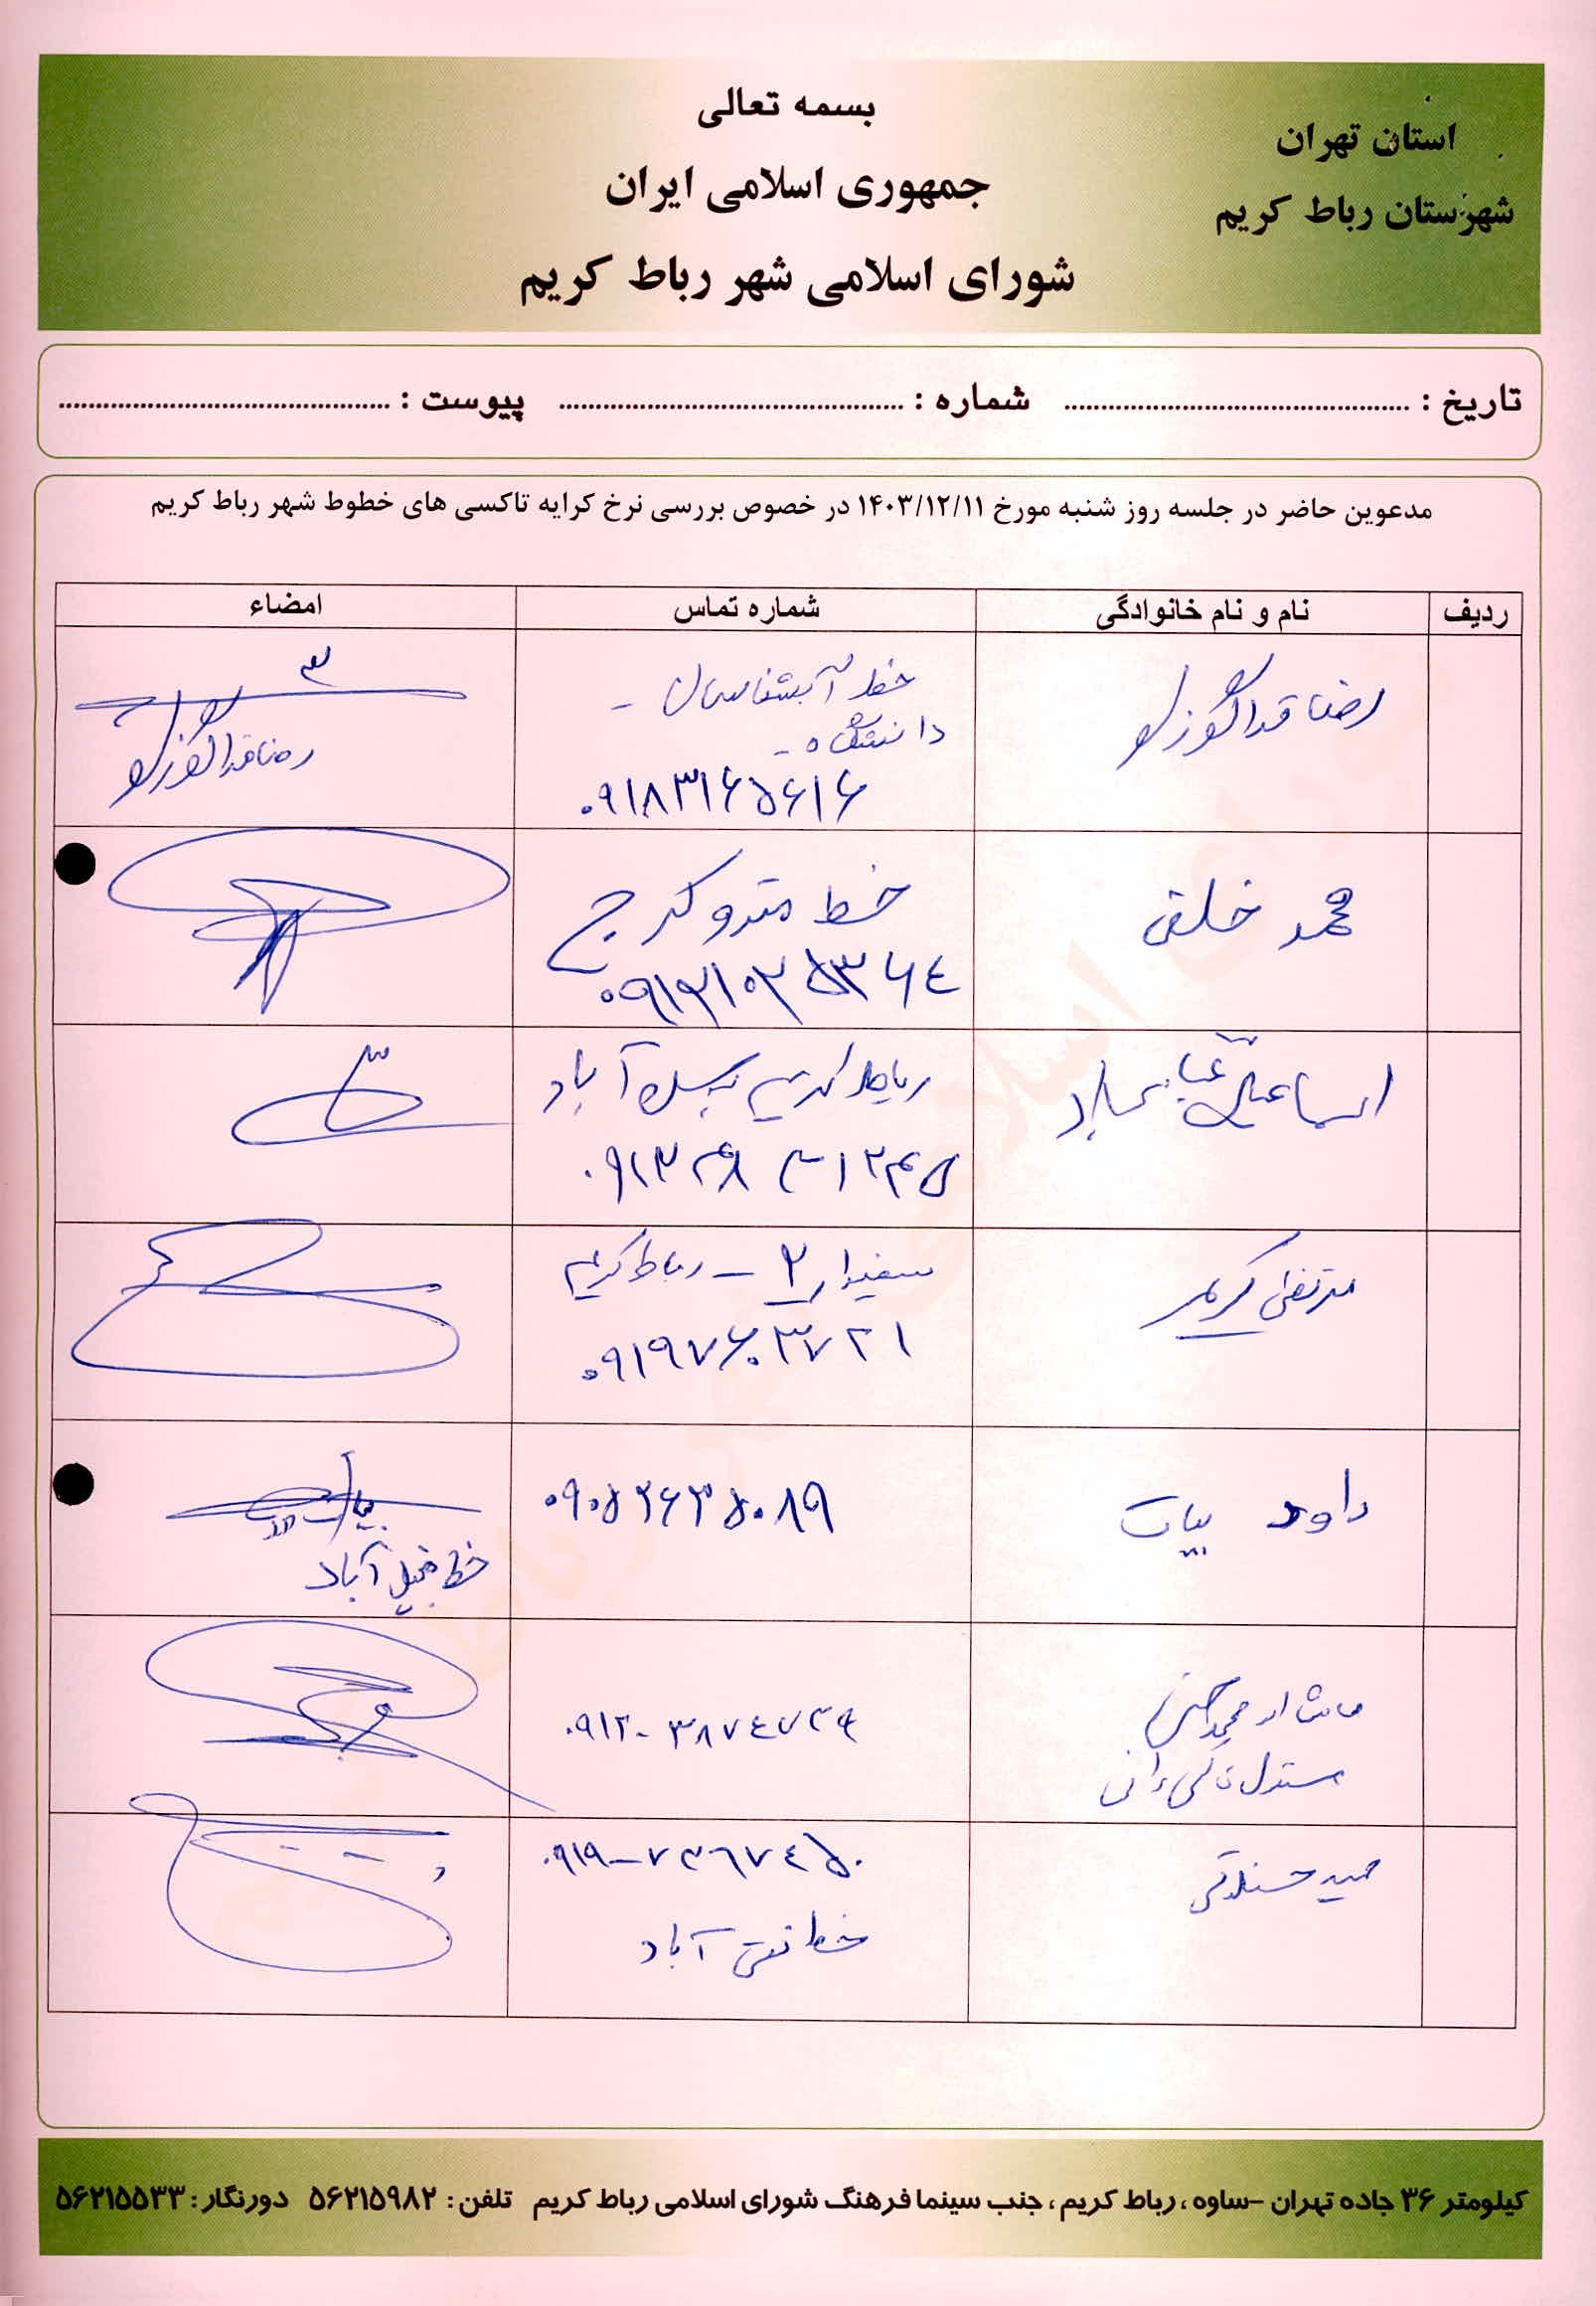 بسمه تعالی
جمهوری اسلامی ایران
شورای اسلامی شهر رباط کریم
استان تهران
شهرستان رباط کریم
تاریخ : شماره : پیوست :
مدعوین حاضر در جلسه روز شنبه مورخ ۱۴۰۳/۱۲/۱۱ در خصوص بررسی نرخ کرایه تاکسی های خطوط شهر رباط کریم
ردیف نام و نام خانوادگی شماره تماس امضاء
رضا
خط آبشناسان -
دانشگاه -
۰۹۱۸۳۱۶۵۶۱۶
رضا
محمد خلقی
خط مترو کرج
اسماعیل
رباط کریم آباد
مرتضی کریم
سفیدار ۲ - رباط کریم
۰۹۱۹۷۶۰۳۷۲۱
داود بیات
۰۹۰۵۲۶۳۵۰۸۹
بیات
خط آباد
ماشااله
۰۹۱۲۰۳۸۷۴۷۳۹
حمید
۰۹۱۹-۷۳۶۷۴۵۰
خط تقی آباد
کیلومتر ۳۶ جاده تهران -ساوه ، رباط کریم ، جنب سینما فرهنگ شورای اسلامی رباط کریم تلفن : ۵۶۲۱۵۹۸۲ دورنگار : ۵۶۲۱۵۵۳۳